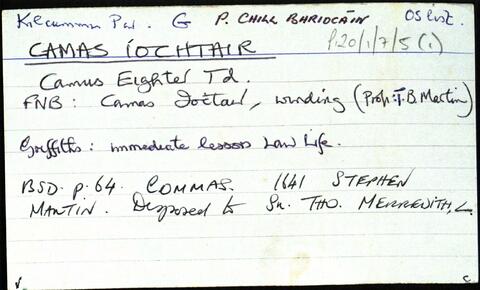 Kilcummin Par. G P. CHILL BHRIOCÁIN OS list.
P.20/1/7/5(1)
CAMAS ÍOCHTAIR
Camus Eighter Td.
FNB: Camas íoctair, winding (Prop: T.B. Martin)
Griffiths: immediate lessors Law Life.
BSD. p. 64. COMMAS. 1641 STEPHEN
MARTIN. Disposed to Sr. THO. MERREDITH,